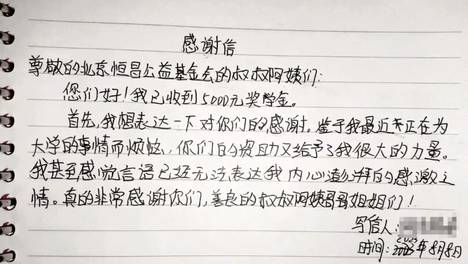 感谢信
尊敬的北京恒昌公益基金会的叔叔阿姨们:
您们好!我已收到5000元奖学金。
首先,我想表达一下对你们的感谢。鉴于我最近正在为
大学的事情而烦恼,你们的援助又给予了我很大的力量。
我甚至感觉言语已经无法表达我内心澎湃的感激之
情。真的非常感谢你们,善良的叔叔阿姨哥哥姐姐们!
写信人:
时间:2023年8月8日